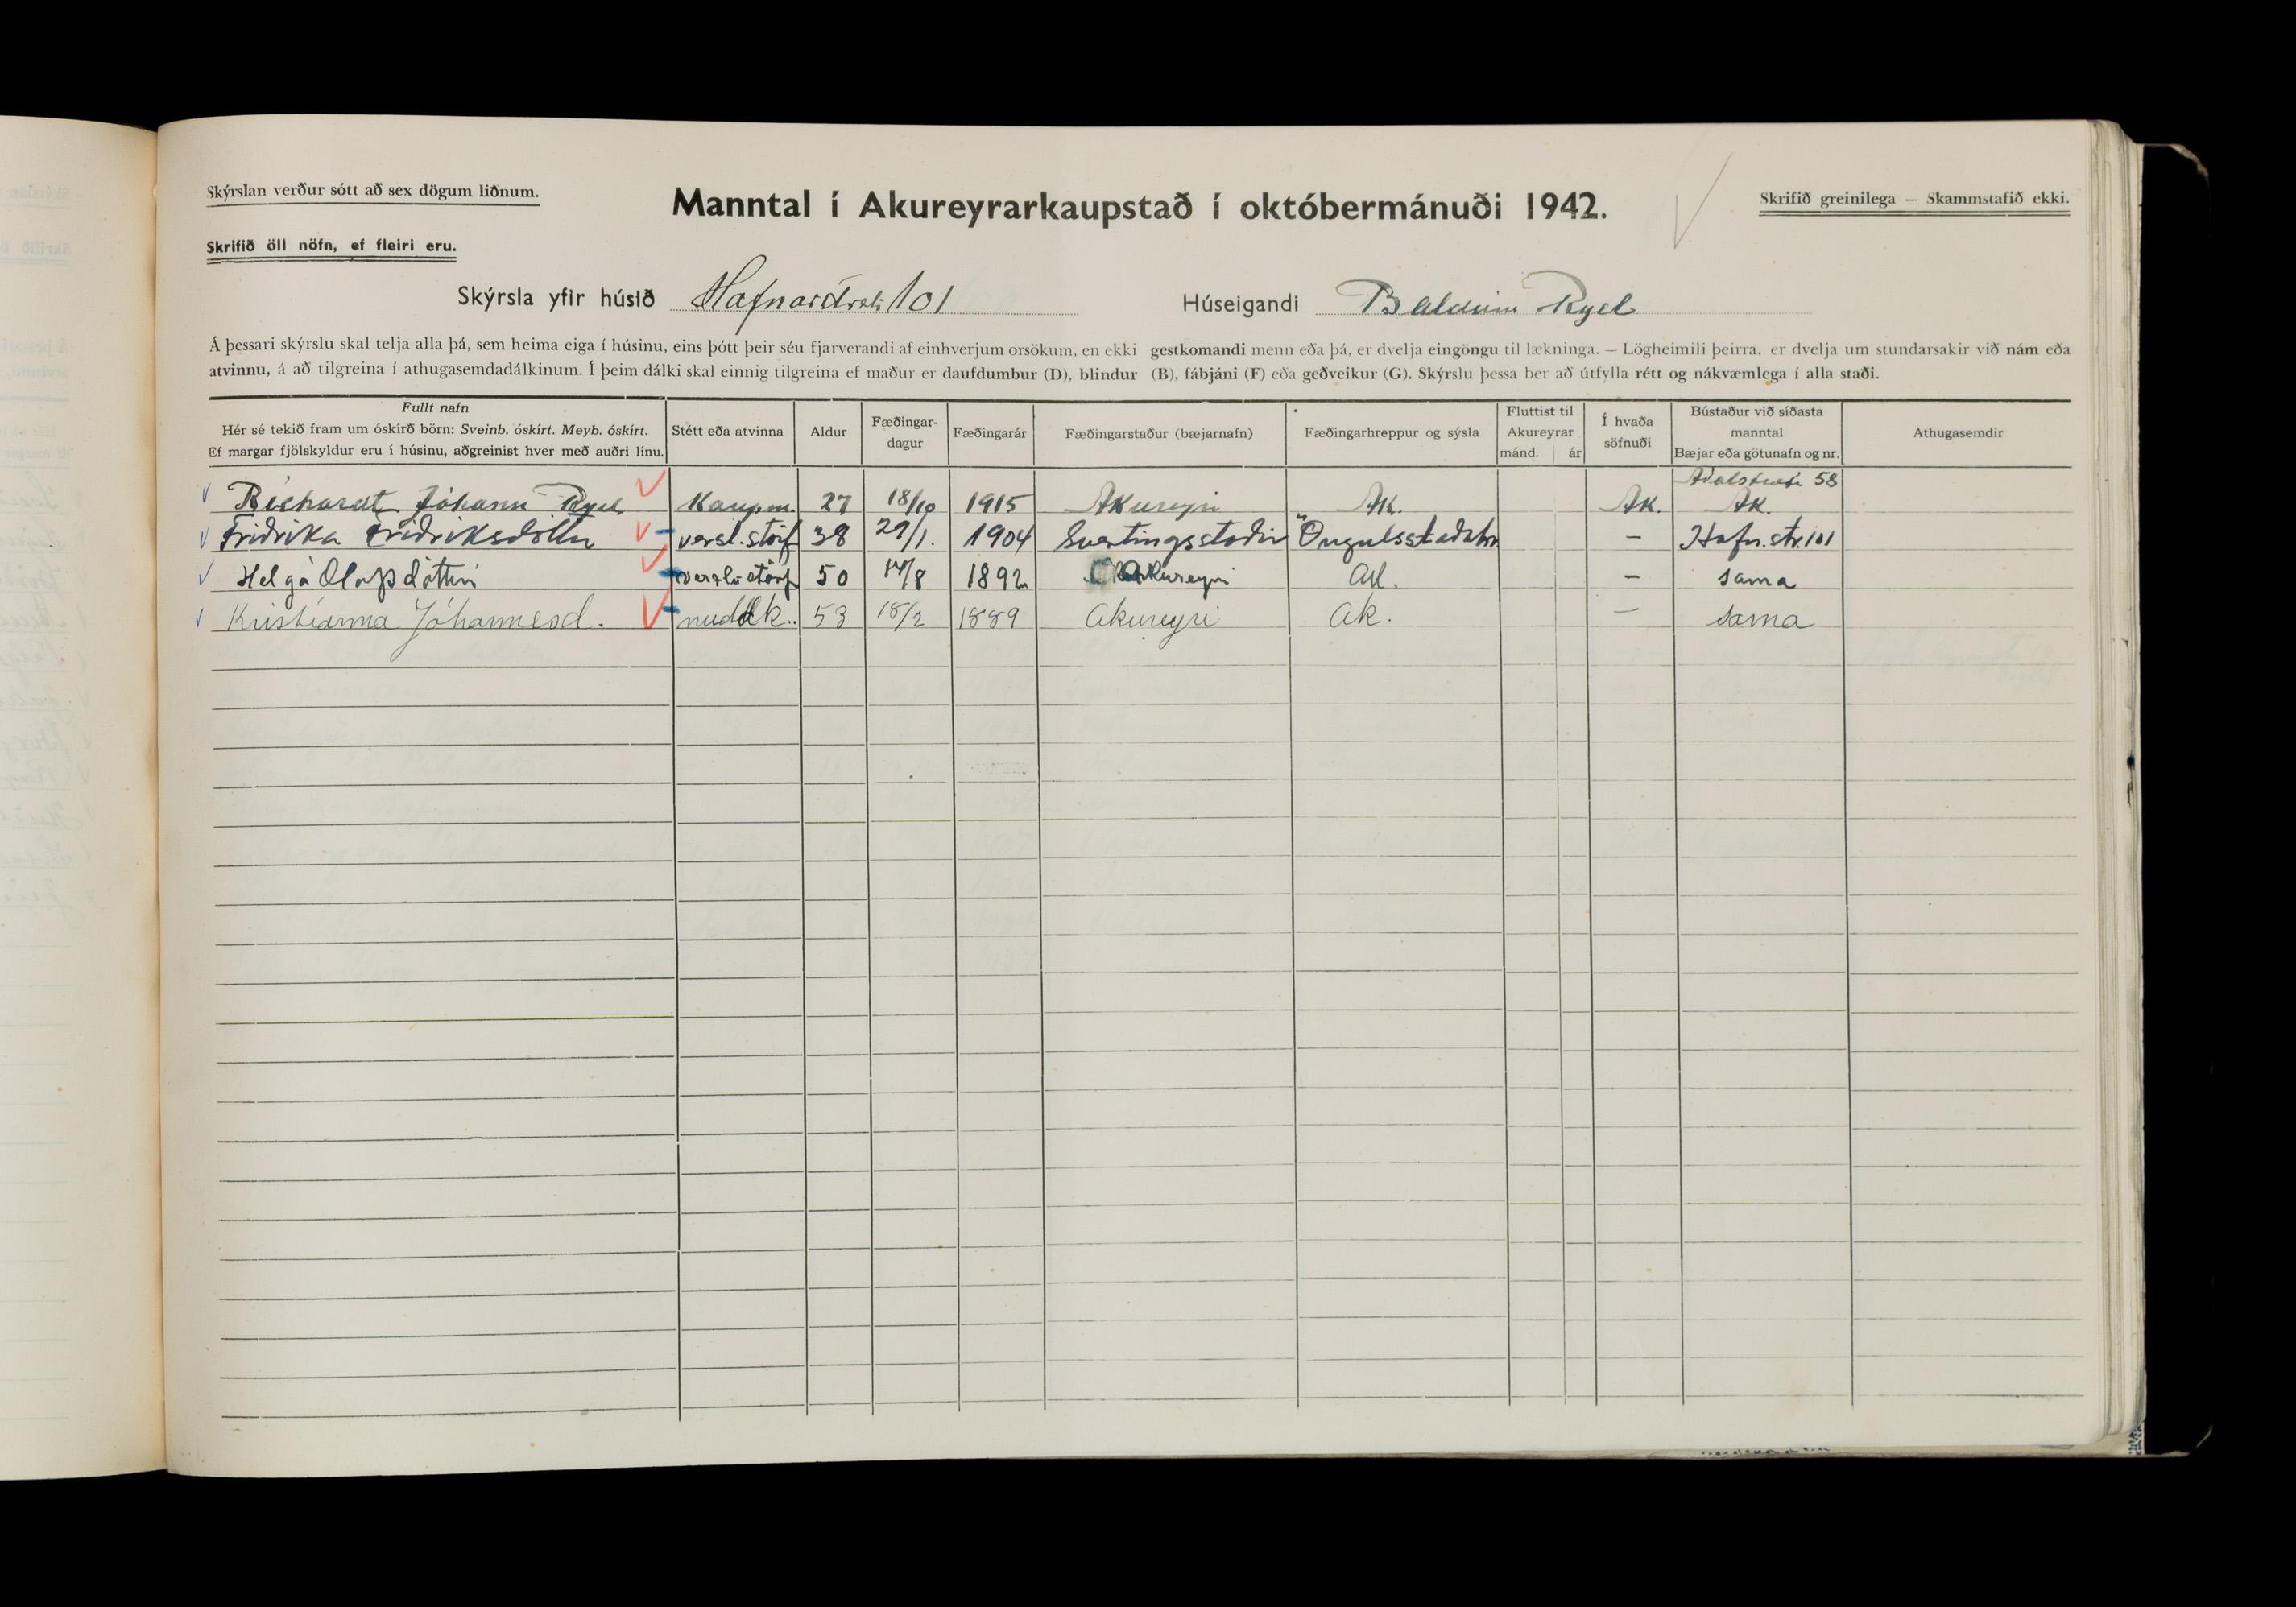 Skýrslan verður sótt að sex dögum liðnum.
Manntal í Akureyrarkaupstað í októbermánuði 1942.
Skrifið greinilega — Skammstafið ekki.
Skrifið öll nöfn, ef fleiri eru.
Skýrsla yfir húsið Hafnarstræti 101 Húseigandi Baldvin Ryel
Á þessari skýrslu skal telja alla þá, sem heima eiga í húsinu, eins þótt þeir séu fjarverandi af einhverjum orsökum, en ekki gestkomandi menn eða þá, er dvelja eingöngu til lækninga. — Lögheimili þeirra, er dvelja um stundarsakir við nám eða
atvinnu, á að tilgreina í athugasemdadálkinum. Í þeim dálki skal einnig tilgreina ef maður er daufdumbur (D), blindur (B), fábjáni (F) eða geðveikur (G). Skýrslu þessa ber að útfylla rétt og nákvæmlega í alla staði.
Fullt nafn
Hér sé tekið fram um óskírð börn: Sveinb. óskírt. Meyb. óskírt.
Ef margar fjölskyldur eru í húsinu, aðgreinist hver með auðri línu.
Stétt eða atvinna
Aldur
Fæðingar-
dagur
Fæðingarár
Fæðingarstaður (bæjarnafn)
Fæðingarhreppur og sýsla
Fluttist til
Akureyrar
mánd. ár
Í hvaða
söfnuði
Bústaður við síðasta
manntal
Bæjar eða götunafn og nr.
Athugasemdir
Aðalstræti 58
Richardt Jóhann Ryel Kaupm. 27 18/10 1915 Akureyri Ak. Ak. Ak.
Friðrika Friðriksdóttir versl.störf 38 29/1. 1904 Svertingsstaðir Öngulsstaðahr. — Hafn.str. 101
Helga Olafsdóttir verslustörf 50 14/8 1892 Akureyri Ak. — sama
Kristíanna Jóhannesd. nuddk.. 53 18/2 1889 Akureyri Ak. — sama